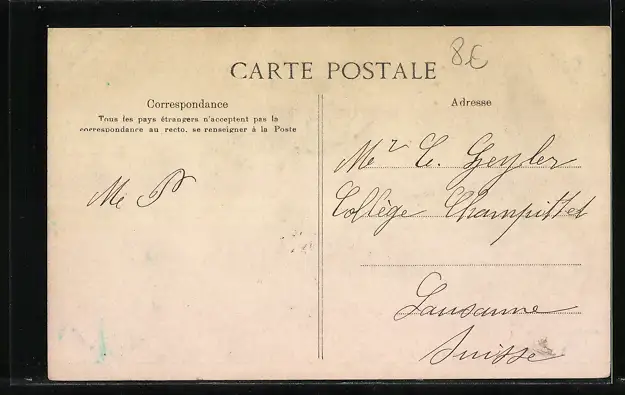 8€
CARTE POSTALE
Correspondance
Adresse
Tous les pays étrangers n'acceptent pas la
correspondance au recto, se renseigner à la Poste
Mr C. Geyler
Collège Champittet
Lausanne
Suisse